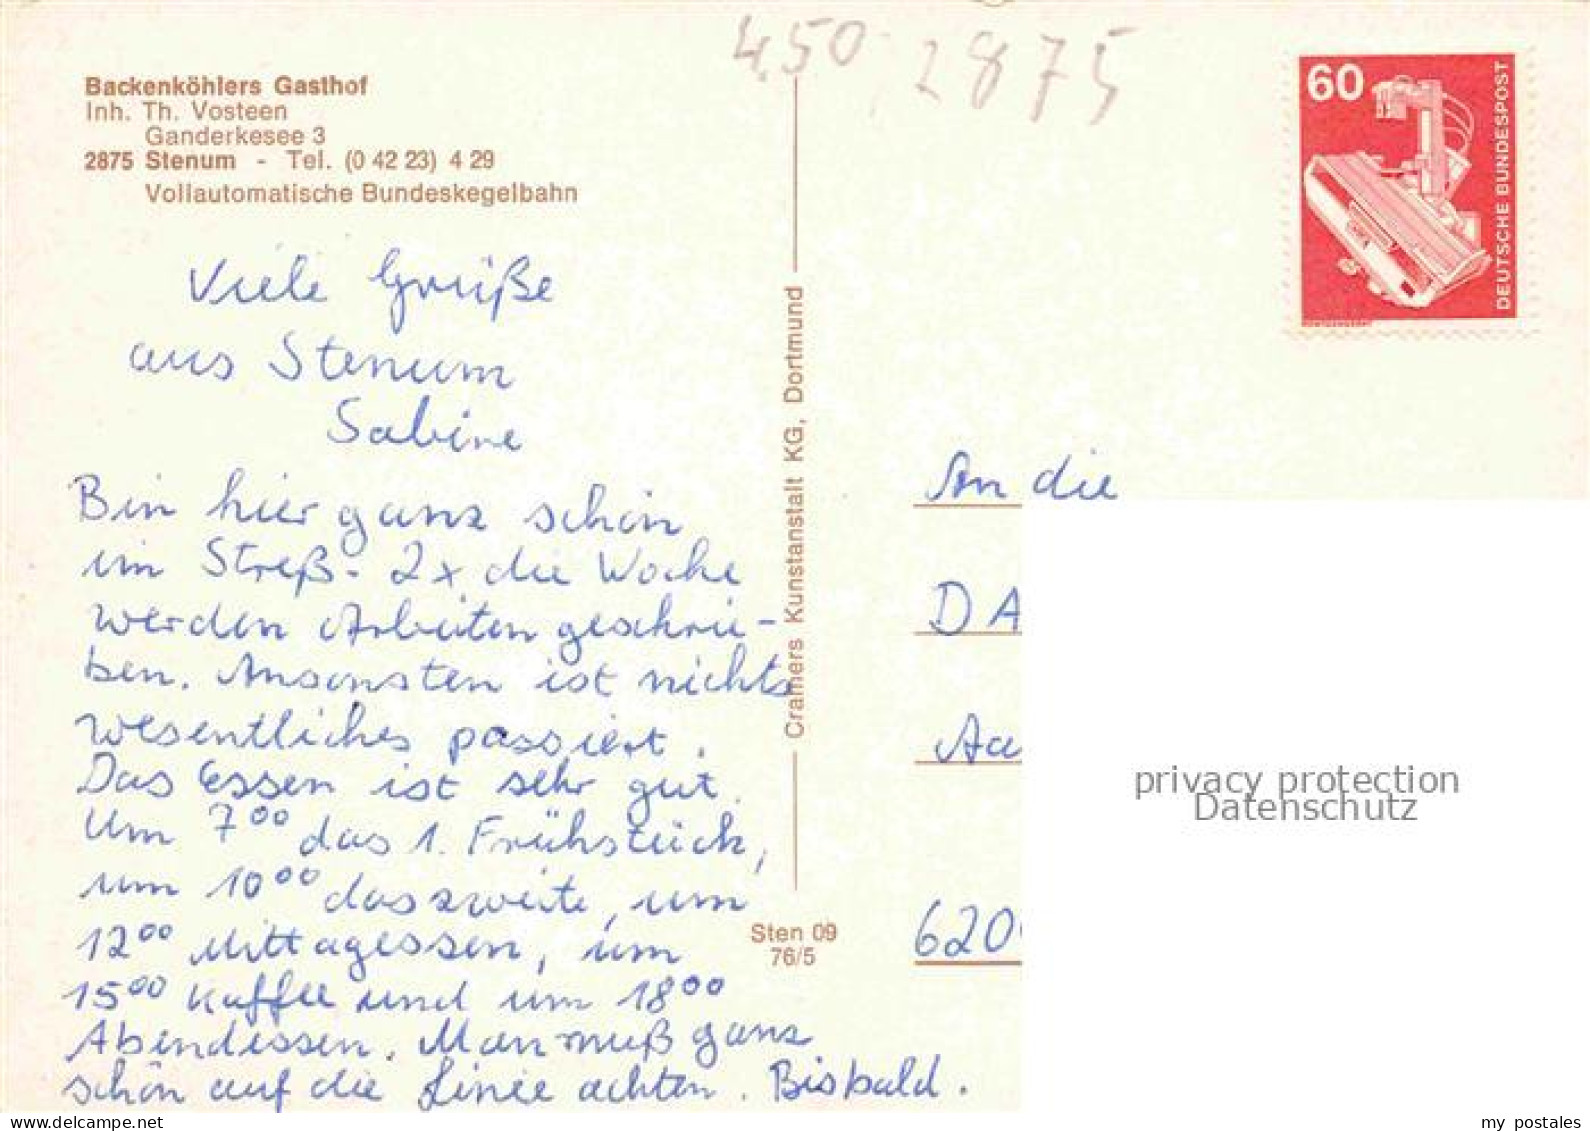 450 2875
Backenköhlers Gasthof
Inh. Th. Vosteen
Ganderkesee 3
2875 Stenum - Tel. (0 42 23) 4 29
Vollautomatische Bundeskegelbahn
60
DEUTSCHE BUNDESPOST
Viele Grüße
aus Stenum
Sabine
Bin hier ganz schön
im Streß. 2x die Woche
werden Arbeiten geschrie-
ben. Ansonsten ist nichts
wesentliches passiert.
Das Essen ist sehr gut.
Um 7⁰⁰ das 1. Frühstück,
um 10⁰⁰ das zweite, um
12⁰⁰ Mittagessen, um
15⁰⁰ Kaffee und um 18⁰⁰
Abendessen. Man muß ganz
schön auf die Linie achten. Bisbald.
Cramers Kunstanstalt KG, Dortmund
Sten 09
76/5
An die
DA
Aa
620
privacy protection
Datenschutz
my postales